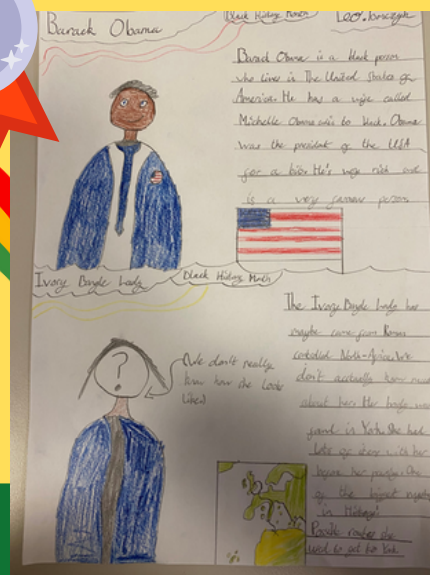 Barack Obama
Black History Month
Leo.
Barack Obama is a black person
who lives in The United States of
America. He has a wife called
Michelle Obama who is black. Obama
was the president of the USA
for a bit. He's very rich and
is a very famous person.
Ivory Bangle Lady
Black History Month
(We don't really
know how she looks
like.)
?
The Ivory Bangle Lady has
maybe came from Roman
controlled North-Africa. We
don't actually know much
about her. Her body was
found in York. She had
lots of
of the biggest
in History.
Possible routes she
used to get to York